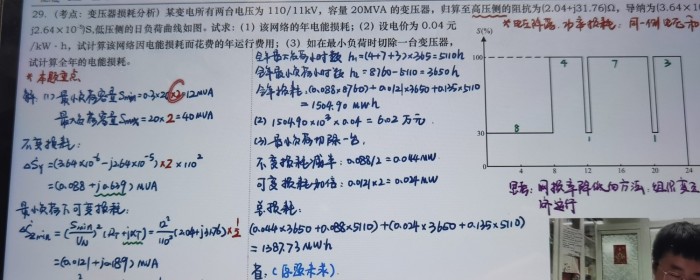 29.（考点：变压器损耗分析）某变电所有两台电压为 110/11kV，容量 20MVA 的变压器，归算至高压侧的阻抗为(2.04+j31.76)Ω，导纳为(3.64×1
j2.64×10⁻⁵)S,低压侧的日负荷曲线如图。试求：（1）该网络的年电能损耗；（2）设电价为 0.04 元
/kW·h，试计算该网络因电能损耗而花费的年运行费用；（3）如在最小负荷时切除一台变压器，
试计算全年的电能损耗。
* 本题重点
解：(1) 最小负荷容量 Smin=0.3×20×2=12MVA
最大负荷容量 Smax=20×2=40MVA
不变损耗：
ΔSy=(3.64×10⁻⁶-j2.64×10⁻⁵)×2×110²
=(0.088+j0.639)MVA
最小负荷下可变损耗：
=(0.0121+j0.189)MVA
全年最大负荷小时数 h₁=(4+7+3)×365=5110h
全年最小负荷小时数 h₂=8760-5110=3650h
全年损耗：(0.088×8760)+0.0121×3650+0.135×5110
=1504.90 MWh
(2) 1504.90×10³×0.04=6.02万元
(3) 最小负荷切除一台，
不变损耗减半：0.088/2=0.044MW
可变损耗加倍：0.0121×2=0.024MW
总损耗：
(0.044×3650+0.088×5110)+(0.024×3650+0.135×5110)
=1387.73MWh
S(%)
100
30
4
7
3
8
1
1
0
4
8
12
16
20
24